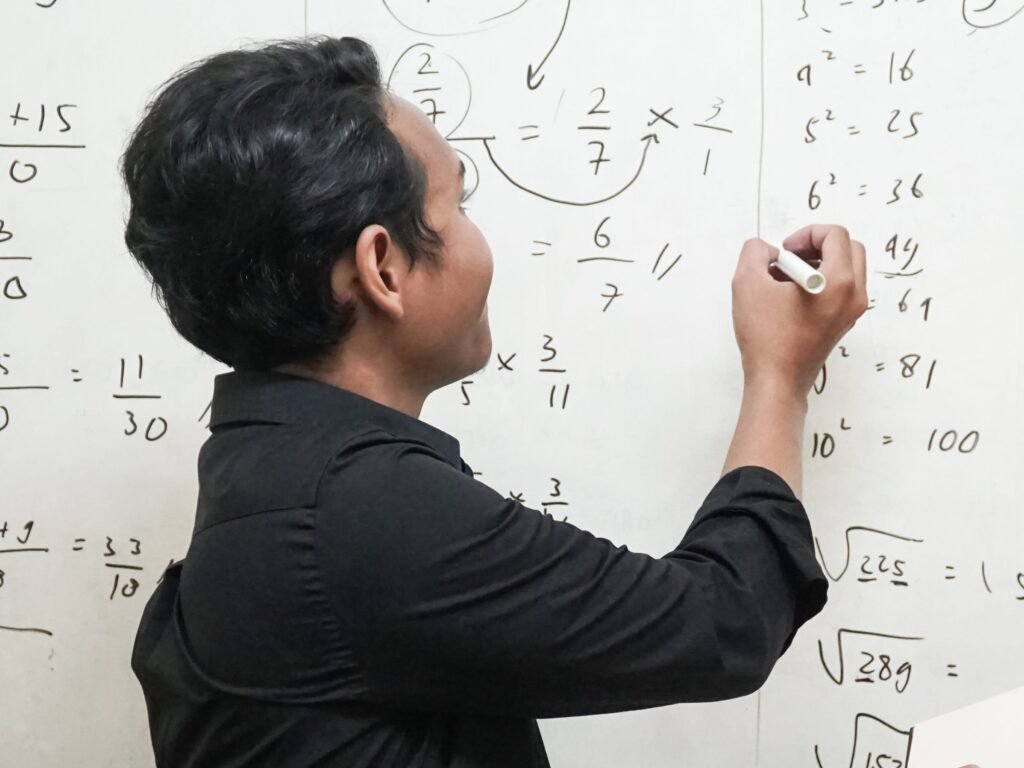 +15
0
= 11/30
+9
= 33/18
2/7
= 2/7 × 3/1
= 6/7 //
5 × 3/11
× 3
4² = 16
5² = 25
6² = 36
49
= 64
² = 81
10² = 100
√225 = 15
√289 =